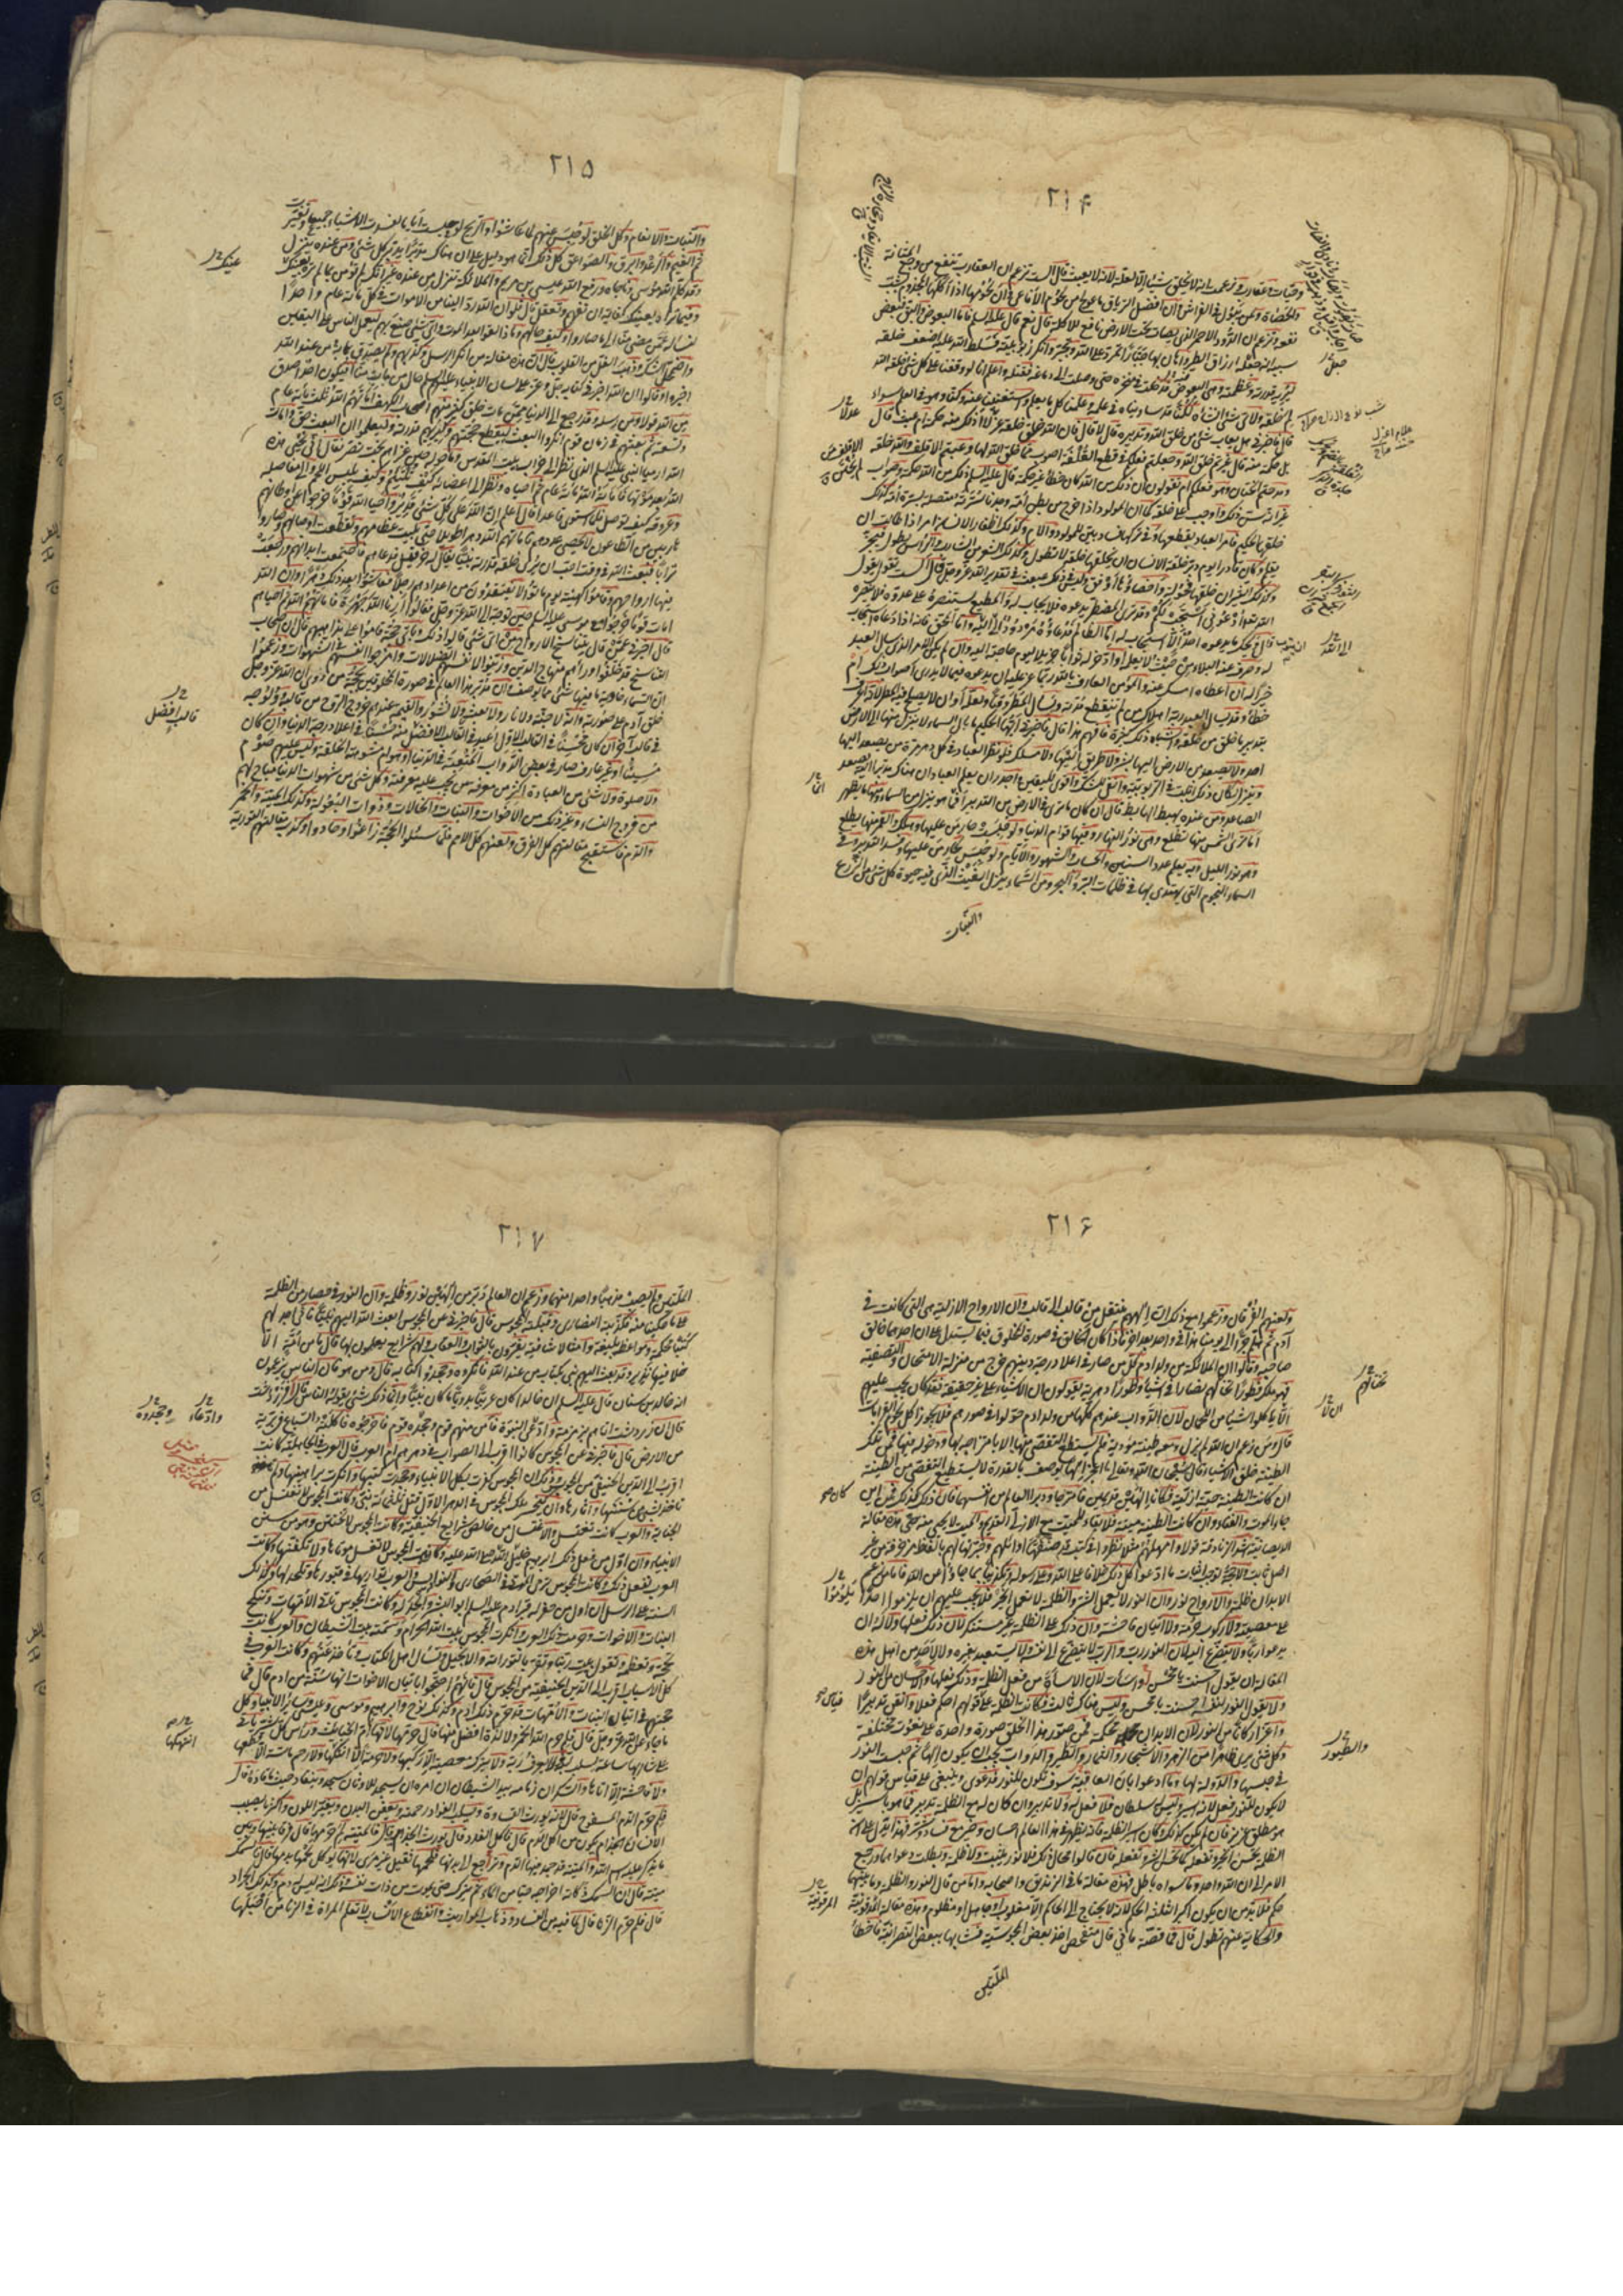 ٢١۴
وحيات وعقارب زعمت انه لا يخلق شيئا الا لعلة لانه لا يعبث قال الست تزعم ان العقارب تنفع من وجع المثانة
والحصاة ولمن يبول في الفراش وان افضل الترياق ما عولج من لحوم الافاعي فان لحومها اذا اكلها المجذوم بشب
نفعه وتزعم ان الدود الاحمر الذي يصاب تحت الارض نافع للاكلة قال نعم قال عليه السلم فاما البعوض والبق فبعض
سببه انه جعله ارزاق الطير واهان بها جبارا تمرد على الله وتجبر وانكر ربوبيته فسلط الله عليه اضعف خلقه
ليريه قدرته وعظمته وهي البعوض فدخلت في منخره حتى وصلت الى دماغه فقتلته واعلم انا لو وقفنا على كل شئ خلقه الله
لم خلقه ولاي شئ انشأه لكنا قد ساويناه في علمه وعلمنا كل ما يعلم واستغنينا عنه وكنا وهو في العلم سواء
قال فاخبرني هل يعاب شئ من خلق الله وتدبيره قال لا قال فان الله خلق خلقه غرلا اذلك منه حكمة ام عبث قال
بل حكمة منه قال غيرتم خلق الله وجعلتم فعلكم في قطع القلفة اصوب مما خلق الله لها وعبتم الاقلف والله خلقه
ومدحتم الختان وهو فعلكم ام تقولون ان ذلك من الله كان خطأ غير حكمة قال عليه السلم ذلك من الله حكمة وصواب
غير انه سن ذلك واوجبه على خلقه كما ان المولود اذا خرج من بطن امه وجدنا سرته متصلة بسرة امه كذلك
خلقها الحكيم فامر العباد بقطعها وفي تركها فساد بين للمولود والام وكذلك اظفار الانسان امر اذا طالت ان
يقلم وكان قادرا يوم دبر خلقة الانسان ان يخلقها خلقة لا تطول وكذلك الشعر من الشارب والراس يطول فيجز
وكذلك الثيران خلقها فحولة واخصاؤها اوفق وليس في ذلك عيب في تقدير الله عز وجل قال الست تقول يقول
الله تعالى ادعوني استجب لكم وقد نرى المضطر يدعوه فلا يجاب له والمطيع يستنصره على عدوه فلا ينصره
قال ويحك ما يدعوه احد الا استجاب له اما الظالم فدعاؤه مردود الى ان يتوب اليه واما المحق فانه اذا دعاه استجاب
له وصرف عنه البلاء من حيث لا يعلمه او ادخر له ثوابا جزيلا ليوم حاجته اليه وان لم يكن الامر الذي سال العبد
خيرا له ان اعطاه امسك عنه والمؤمن العارف بالله ربما عز عليه ان يدعوه فيما لا يدري اصواب ذلك ام
خطأ وقد يسال العبد ربه اهلاك من لم ينقطع مدته ويسال المطر وقتا ولعله اوان لا يصلح فيه المطر لانه اعرف
بتدبير ما خلق من خلقه واشباه ذلك كثيرة فافهم هذا قال فاخبرني ايها الحكيم ما بال السماء لا ينزل منها الى الارض
احد ولا يصعد من الارض اليها بشر ولا طريق اليها ولا مسلك فلو نظر العباد في كل دهر مرة من يصعد اليها
وينزل لكان ذلك اثبت في الربوبية وانفى للشك واقوى لليقين واجدر ان يعلم العباد ان هناك مدبرا اليه يصعد
الصاعد ومن عنده يهبط الهابط قال ان كل ما ترى في الارض من التدبير انما هو ينزل من السماء ومنها يظهر
اما ترى الشمس منها تطلع وهي نور النهار وفيها قوام الدنيا ولو حبست حار من عليها وهلك والقمر منها يطلع
وهو نور الليل وبه يعلم عدد السنين والحساب والشهور والايام ولو حبس لحار من عليها وفسد التدبير وفي
السماء النجوم التي يهتدى بها في ظلمات البر والبحر ومن السماء ينزل الغيث الذي فيه حيوة كل شئ من الزرع
والنبات
٢١۵
والنبات والانعام وكل الخلق لو حبس عنهم لما عاشوا والريح لو حبست اياما لفسدت الاشياء جميعا وتغيرت
ثم الغيم والرعد والبرق والصواعق كل ذلك انما هو دليل على ان هناك مدبرا يدبر كل شئ ومن عنده ينزل
وقد كلم الله موسى وناجاه ورفع الله عيسى بن مريم والملائكة تنزل من عنده غير انك لم تؤمن بما لم تره بعينك
وفيما تراه بعينك كفاية ان تفهم وتعقل قال فلو ان الله رد الينا من الاموات في كل مائة عام واحدا
لنساله عمن مضى منا الى ما صاروا وكيف حالهم وماذا لقوا بعد الموت واي شئ صنع بهم ليعمل الناس على اليقين
واضمحل الشك وذهب الغل من القلوب قال ان هذه مقالة من انكر الرسل وكذبهم ولم يصدق بما به من عند الله
اخبروا وقالوا ان الله اخبر في كتابه جل وعز على لسان الانبياء عليهم السلم حال من مات منا افيكون احد اصدق
من الله قولا ومن رسله وقد رجع الى الدنيا ممن مات خلق كثير منهم اصحاب الكهف اماتهم الله ثلث مائة عام
وتسعة ثم بعثهم في زمان قوم انكروا البعث ليقطع حجتهم وليريهم قدرته وليعلموا ان البعث حق وامات
الله ارميا النبي عليه السلم الذي نظر الى خراب بيت المقدس وما حوله حين غزاهم بخت نصر فقال انى يحيي هذه
الله بعد موتها فاماته الله مائة عام ثم احياه ونظر الى اعضائه كيف تلتئم وكيف يلبس اللحم والى مفاصله
وعروقه كيف توصل فلما استوى قاعدا قال اعلم ان الله على كل شئ قدير واحيا الله قوما خرجوا عن اوطانهم
هاربين من الطاعون لا يحصى عددهم فاماتهم الله دهرا طويلا حتى بليت عظامهم وتقطعت اوصالهم وصاروا
ترابا فبعث الله في وقت احب ان يري خلقه قدرته نبيا يقال له حزقيل فدعاهم فاجتمعت ابدانهم ورجعت
فيها ارواحهم وقاموا كهيئة يوم ماتوا لا يفتقدون من اعدادهم رجلا فعاشوا بعد ذلك دهرا وان الله
امات قوما خرجوا مع موسى عليه السلم حين توجه الى الله عز وجل فقالوا ارنا الله جهرة فاماتهم الله ثم احياهم
قال اخبرني عمن قال بتناسخ الارواح من اي شئ قالوا ذلك وباي حجة قاموا على مذاهبهم قال ان اصحاب
التناسخ قد خلفوا وراءهم منهاج الدين وزينوا لانفسهم الضلالات وامرجوا انفسهم في الشهوات وزعموا
ان السماء خاوية ما فيها شئ مما يوصف وان مدبر هذا العالم في صورة المخلوقين بحجة من روى ان الله عز وجل
خلق ادم على صورته وانه لا جنة ولا نار ولا بعث ولا نشور والقيمة عندهم خروج الروح من قالبه وولوجه
في قالب اخر ان كان محسنا في القالب الاول اعيد في القالب الافضل منه حسنا في اعلا درجة الدنيا وان كان
مسيئا او غير عارف صار في بعض الدواب المتعبة في الدنيا او هوام مشوهة الخلقة وليس عليهم صوم
ولا صلوة ولا شئ من العبادة اكثر من معرفة من يجب عليه معرفته وكل شئ من شهوات الدنيا مباح لهم
من فروج النساء وغير ذلك من الاخوات والبنات والخالات وذوات البعولة وكذلك الميتة والخمر
والدم فاستقبح مقالتهم كل الفرق ولعنهم كل الامم فلما سئلوا الحجة زاغوا وحادوا وكذب مقالتهم التورية
عينك
قالب افضل
٢١۶
ولعنهم الفرقان وزعموا مع ذلك ان الههم ينتقل من قالب الى قالب وان الارواح الازلية هي التي كانت في
آدم ثم هلم جرا الى يومنا هذا في واحد بعد اخر فاذا كان الخالق في صورة المخلوق فبما يستدل على ان احدهما خالق
صاحبه وقالوا ان الملائكة من ولد ادم كل من صار في اعلا درجة دينهم خرج من منزلة الامتحان والتصفية
فهو ملك فطورا تخالهم نصارى في اشياء وطورا دهرية يقولون ان الاشياء على غير حقيقة فقد كان يجب عليهم
الا ياكلوا شيئا من اللحمان لان الدواب عندهم كلها من ولد ادم حولوا في صورهم فلا يجوز اكل لحوم القرابات
قال ومن زعم ان الله لم يزل ومعه طينة موذية فلم يستطع التفصي منها الا بامتزاجه بها ودخوله فيها فمن تلك
الطينة خلق الاشياء قال سبحان الله وتعالى ما اعجز الها يوصف بالقدرة لا يستطيع التفصي من الطينة
ان كانت الطينة حية ازلية فكانا الهين قديمين فامتزجا ودبرا العالم من انفسهما فان كان ذلك كذلك فمن اين
جاء الموت والفناء وان كانت الطينة ميتة فلا بقاء للميت مع الازلي القديم والميت لا يجيئ منه حي هذه مقالة
الديصانية اشد الزنادقة قولا واهملهم مثلا نظروا في كتب قد صنفتها اوائلهم وحبروها لهم بالفاظ مزخرفة من غير
اصل ثابت ولا حجة توجب اثبات ما ادعوا كل ذلك خلافا على الله وعلى رسوله وتكذيبا بما جاءوا من الله فاما من زعم
الابدان ظلمة والارواح نور وان النور لا يعمل الشر والظلمة لا تعمل الخير فلا يجب عليهم ان يلوموا احدا
على معصية ولا ركوب حرمة ولا اتيان فاحشة وان ذلك على الظلمة غير مستنكر لان ذلك فعلها ولا له ان
يدعو ربا ولا يتضرع اليه لان النور رب والرب لا يتضرع الى نفسه ولا يستعيذ بغيره ولا لاحد من اهل هذه
المقالة ان يقول احسنت يا محسن او اسأت لان الاساءة من فعل الظلمة وذلك فعلها والاحسان من النور
ولا يقول النور لنفسه احسنت يا محسن وليس هناك ثالث فكانت الظلمة على قولهم احكم فعلا واتقن تدبيرا
واعز اركانا من النور لان الابدان محكمة فمن صور هذا الخلق صورة واحدة على نعوت مختلفة
وكل شئ يرى ظاهرا من الزهر والاشجار والثمار والطير والدواب يجب ان يكون الها ثم حبست النور
في حبسها والدولة لها وما ادعوا بان العاقبة سوف تكون للنور فدعوى وينبغي على قياس قولهم ان
لا يكون للنور فعل لانه اسير وليس له سلطان فلا فعل له ولا تدبير وان كان له مع الظلمة تدبير فما هو باسير بل
هو مطلق عزيز فان لم يكن كذلك وكان اسير الظلمة فانه يظهر في هذا العالم احسان وخير مع فساد وشر فهذا يدل على ان
الظلمة تحسن الخير وتفعله كما تحسن الشر وتفعله فان قالوا محال ذلك فلا نور يثبت ولا ظلمة وبطلت دعواهم ورجع
الامر الى ان الله واحد وما سواه باطل فهذه مقالة ماني الزنديق واصحابه واما من قال النور والظلمة وبينهما
حكم فلا بد من ان يكون اكبر الثلثة الحكم لانه لا يحتاج الى الحاكم الا مغلوب او جاهل او مظلوم وهذه مقالة المدقونية
والحكاية عنهم تطول قال فما قصة ماني قال متفحص اخذ بعض المجوسية فشابها ببعض النصرانية فاخطأ
الملتين
والطيور
المرقونية
٢١٧
الملتين ولم يصب مذهبا واحدا منهما وزعم ان العالم دبر من الهين نور وظلمة وان النور في حصار من الظلمة
على ما حكينا منه فكذبته النصارى وقبلته المجوس قال فاخبرني عن المجوس ابعث الله اليهم نبيا فاني اجد لهم
كتبا محكمة ومواعظ بليغة وامثالا شافية يقرون بالثواب والعقاب ولهم شرايع يعملون بها قال ما من امة الا
خلا فيها نذير وقد بعث اليهم نبي بكتاب من عند الله فانكروه وجحدوا كتابه قال ومن هو فان الناس يزعمون
انه خالد بن سنان قال عليه السلم ان خالدا كان عربيا بدويا ما كان نبيا وانما ذلك شئ يقوله الناس قال افزردشت
قال ان زردشت اتاهم بزمزمة وادعى النبوة فامن منهم قوم وجحده قوم فاخرجوه فاكلته السباع في برية
من الارض قال فاخبرني عن المجوس كانوا اقرب الى الصواب في دهرهم ام العرب قال العرب في الجاهلية كانت
اقرب الى الدين الحنيفي من المجوس وذلك ان المجوس كفرت بكل الانبياء وجحدت كتبها وانكرت براهينها ولم
تاخذ بشئ من سننها واثارها وان كيخسرو ملك المجوس في الدهر الاول قتل ثلثمائة نبي وكانت المجوس لا تغتسل من
الجنابة والعرب كانت تغتسل والاغتسال من خالص شرايع الحنيفية وكانت المجوس لا تختتن وهو من سنن
الانبياء وان اول من فعل ذلك ابرهيم خليل الله وكانت المجوس لا تغسل موتاها ولا تكفنها وكانت
العرب تفعل ذلك وكانت المجوس ترمي الموتى في الصحارى والنواويس والعرب تواريها في قبورها وتلحد لها وكذلك
السنة على الرسل ان اول من حفر له قبر ادم عليه السلم ابو البشر والحد له وكانت المجوس تاتي الامهات وتنكح
البنات والاخوات وحرمت ذلك العرب وانكرت المجوس بيت الله الحرام وسمته بيت الشيطان والعرب كانت
تحجه وتعظمه وتقول بيت ربنا وتقر بالتورية والانجيل وتسال اهل الكتاب وتاخذ عنهم وكانت العرب في
كل الاسباب اقرب الى الدين الحنيفية من المجوس قال فانهم احتجوا باتيان الاخوات انها سنة من ادم قال فما
حجتهم في اتيان البنات والامهات وقد حرم ذلك ادم وكذلك نوح وابرهيم وموسى وعيسى وساير الانبياء وكل
ما جاء عن الله عز وجل قال فلم حرم الله الخمر ولا لذة افضل منها قال حرمها لانها ام الخبائث وراس كل شر ياتي
على شاربها ساعة يسلب لبه فلا يعرف ربه ولا يترك معصية الا ركبها ولا حرمة الا انتهكها ولا رحم ماسة الا قطعها
ولا فاحشة الا اتاها والسكران زمامه بيد الشيطان ان امره ان يسجد للاوثان سجد وينقاد حيث ما قاده قال
فلم حرم الدم المسفوح قال لانه يورث القساوة ويسلب الفؤاد رحمته ويعفن البدن ويغير اللون واكثر ما يصيب
الانسان الجذام يكون من اكل الدم قال فاكل الغدد قال يورث الجذام قال فالميتة لم حرمها قال فرقا بينها وبين
ما يذكر عليه اسم الله والميتة قد جمد فيها الدم وتراجع الى بدنها فلحمها ثقيل غير مرئ لانها يوكل لحمها بدمها قال فالسمك
ميتة قال ان السمك ذكاته اخراجه حيا من الماء ثم يترك حتى يموت من ذات نفسه وذلك انه ليس له دم وكذلك الجراد
قال فلم حرم الزنا قال لما فيه من الفساد وذهاب المواريث وانقطاع الانساب لا تعلم المراة في الزنا من احبلها
وادعاء
وجحدوه
انتهكها